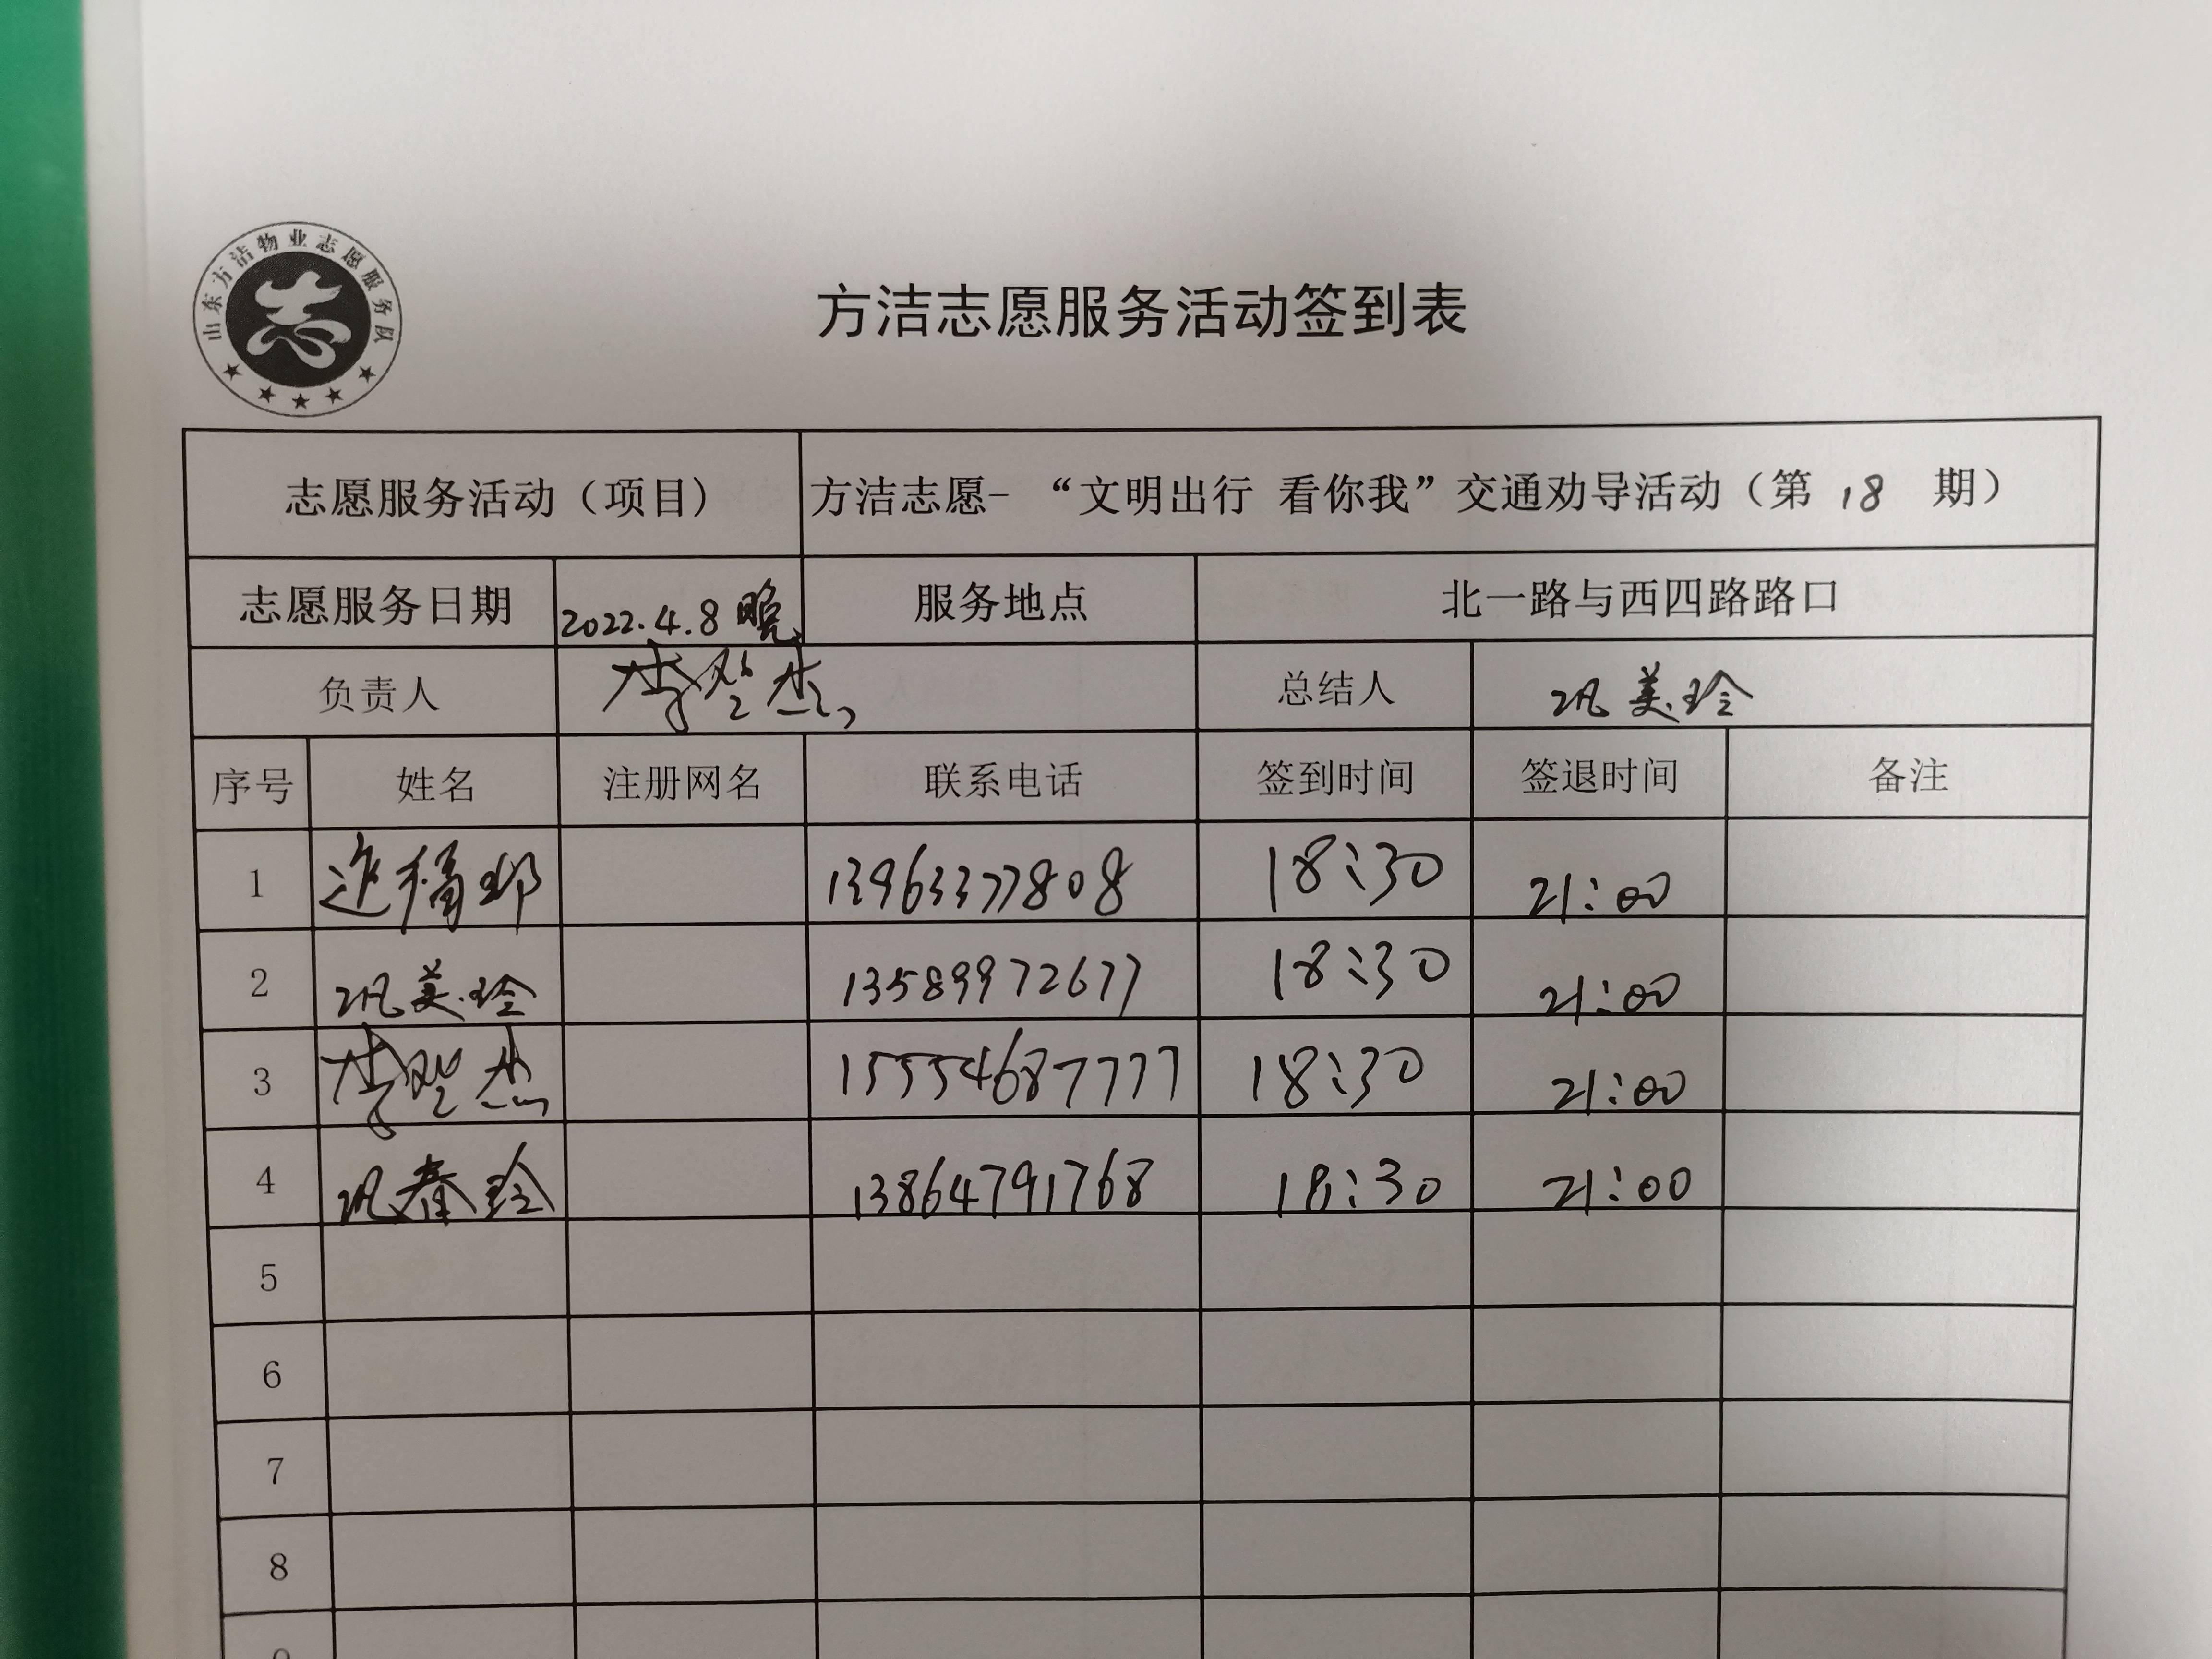 山东方洁物业志愿服务队
方洁志愿服务活动签到表
志愿服务活动（项目） 方洁志愿- “文明出行 看你我”交通劝导活动（第 18 期）
志愿服务日期 2022.4.8 晚 服务地点 北一路与西四路路口
负责人 李登杰 总结人 巩美玲
序号 姓名 注册网名 联系电话 签到时间 签退时间 备注
1 13963377808 18:30 21:00
2 巩美玲 13589972677 18:30 21:00
3 李登杰 15554687777 18:30 21:00
4 巩春玲 13864791768 18:30 21:00
5
6
7
8